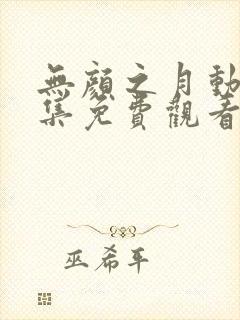 無顏之月動
集免費觀看
巫希平